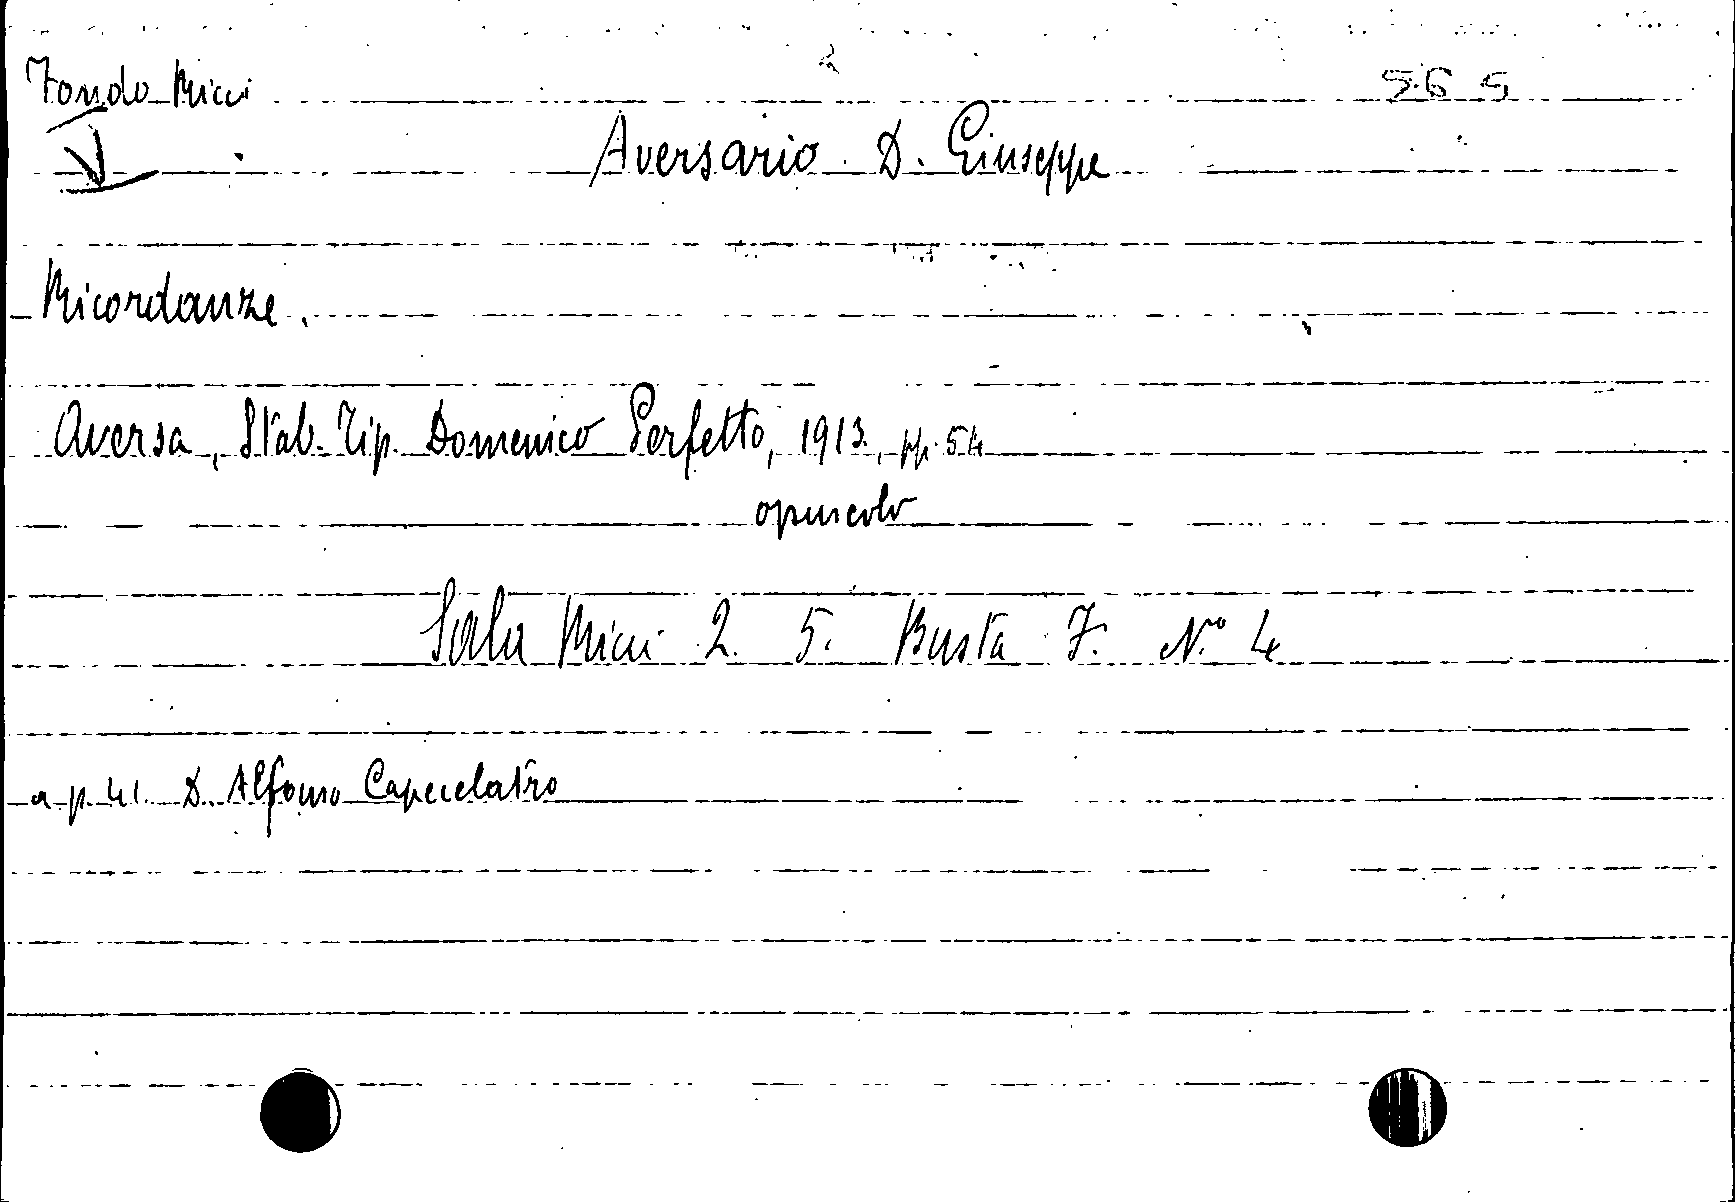 Fondo Ricci
565
Aversario D. Giuseppe
Ricordanze.
Aversa, Stab. Tip. Domenico Perfetto, 1913, pp. 54
opuscolo
Sala Ricci 2. 5. Busta 7. N° 4
a p. 41. D. Alfonso Capecelatro